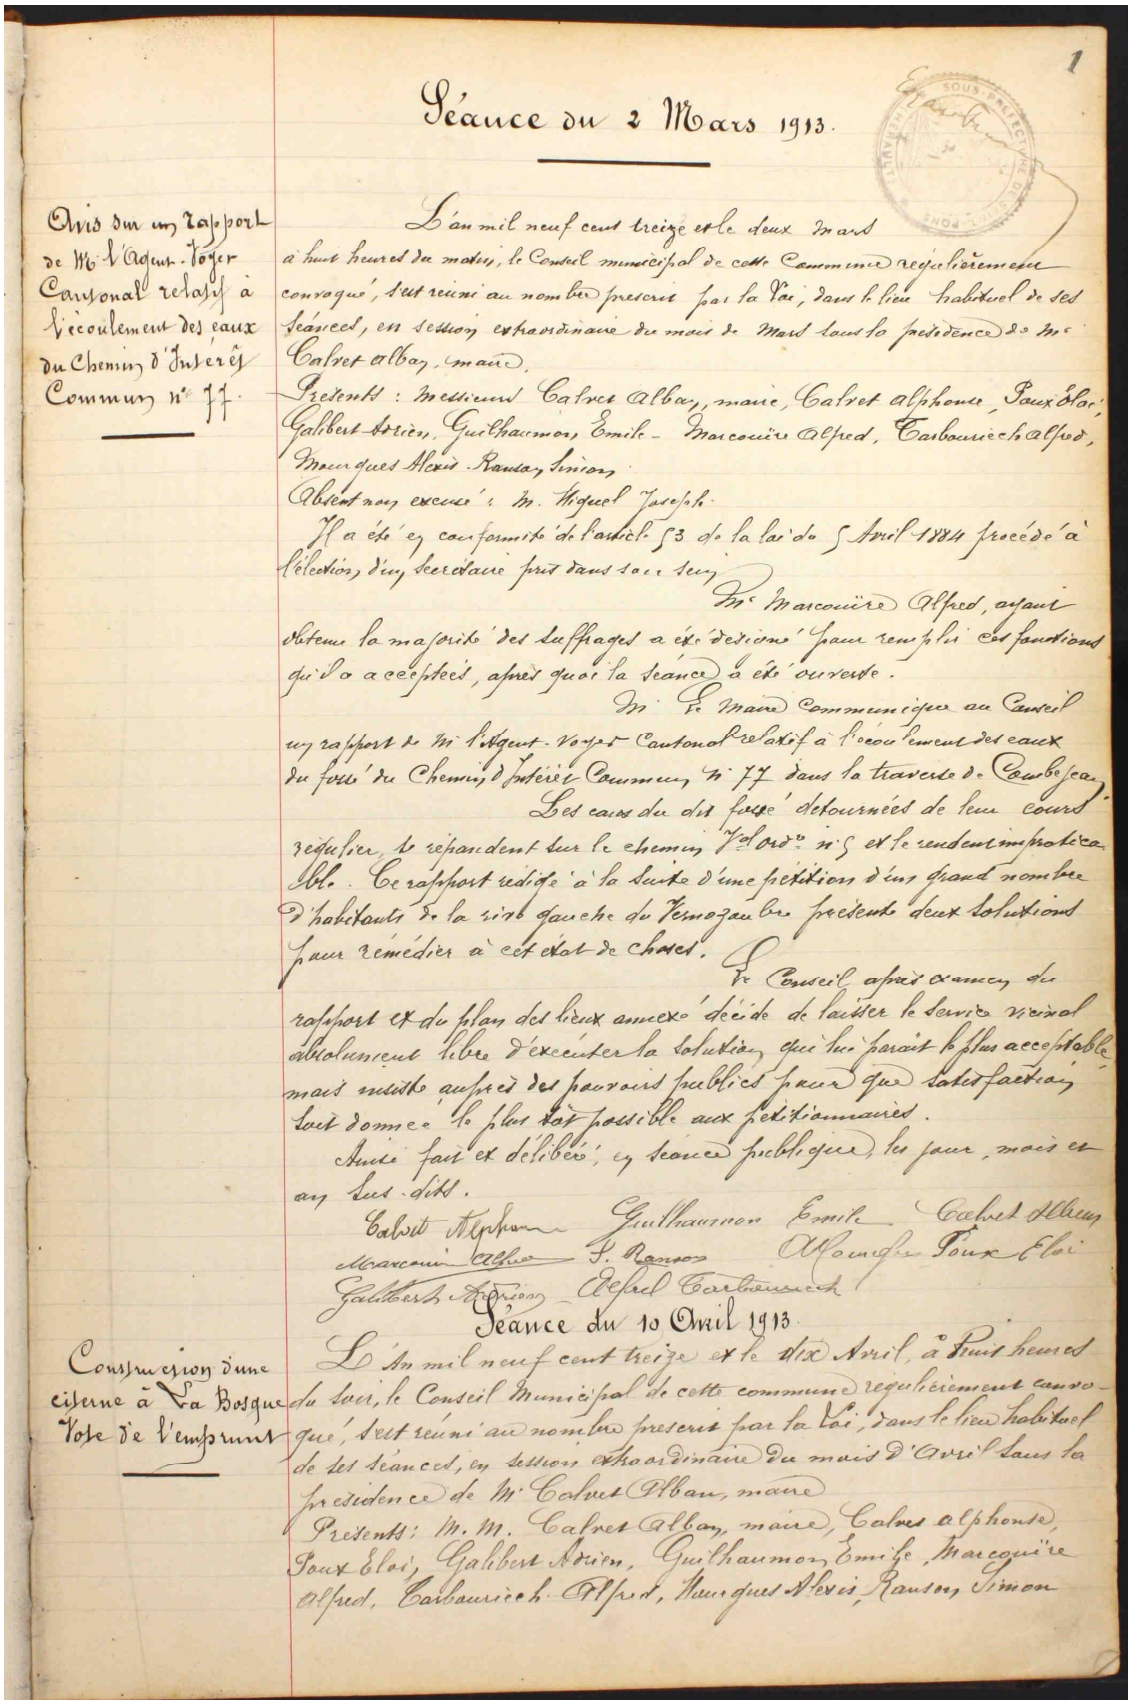 1
SOUS-PRÉFECTURE DE SAINT-PONS
Séance du 2 Mars 1913.
Avis sur un rapport
de Mr l'Agent-Voyer
Cantonal relatif à
l'écoulement des eaux
du Chemin d'Intérêt
Commun n° 77.
L'an mil neuf cent treize et le deux Mars
à huit heures du matin, le Conseil municipal de cette Commune régulièrement
convoqué, s'est réuni au nombre prescrit par la Loi, dans le lieu habituel de ses
séances, en session extraordinaire du mois de Mars sous la présidence de Mr
Calvet Alban, maire.
Présents : Messieurs Calvet Alban, maire, Calvet Alphonse, Poux Eloi,
Galibert Adrien, Guilhaumon Emile - Marcouïre Alfred, Tarbouriech Alfred,
Mourgues Alexis - Ranson Simon
Absent non excusé : M. Miquel Joseph.
Il a été en conformité de l'article 53 de la loi du 5 Avril 1884 procédé à
l'élection d'un Secrétaire pris dans son sein
Mr Marcouïre Alfred, ayant
obtenu la majorité des suffrages a été désigné pour remplir ces fonctions
qu'il a acceptées, après quoi la séance a été ouverte.
M. Le Maire communique au Conseil
un rapport de M. l'Agent-Voyer Cantonal relatif à l'écoulement des eaux
du fossé du Chemin d'Intérêt Commun N° 77 dans la traverse de Combejean
Les eaux du dit fossé détournées de leur cours
régulier, se répandent sur le chemin Val ordre n° 5 et le rendent impratica
ble. Ce rapport rédigé à la suite d'une pétition d'un grand nombre
d'habitants de la rive gauche du Vernazoubre présente deux solutions
pour remédier à cet état de choses.
Le Conseil après examen du
rapport et du plan des lieux annexé décide de laisser le service vicinal
absolument libre d'exécuter la solution qui lui paraît le plus acceptable
mais insiste auprès des pouvoirs publics pour que satisfaction
soit donnée le plus tôt possible aux pétitionnaires.
Ainsi fait et délibéré, en séance publique, les jour, mois et
an sus-dits.
Calvet Alphonse Guilhaumon Emile Calvet Alban
Marcouire Alfred S. Ranson AMourgues Poux Eloi
Galibert Adrien Alfred Tarbouriech
Séance du 10 Avril 1913.
Construction d'une
citerne à La Bosque
Vote de l'emprunt
L'An mil neuf cent treize et le dix Avril, à huit heures
du soir, le Conseil Municipal de cette commune régulièrement convo-
qué, s'est réuni au nombre prescrit par la Loi, dans le lieu habituel
de ses séances, en session extraordinaire du mois d'Avril sous la
présidence de Mr Calvet Alban, maire
Présents : M. M. Calvet Alban, maire, Calvet Alphonse,
Poux Eloi, Galibert Adrien, Guilhaumon Emile, Marcouïre
Alfred, Tarbouriech Alfred, Mourgues Alexis, Ranson Simon